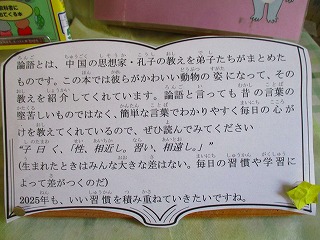 論語とは、中国の思想家・孔子の教えを弟子たちがまとめた
ものです。この本では彼らがかわいい動物の姿になって、その
教えを紹介してくれています。論語と言っても昔の言葉の
堅苦しいものではなく、簡単な言葉でわかりやすく毎日の心が
けを教えてくれているので、ぜひ読んでみてください
“子曰く、「性、相近し。習い、相遠し。」”
(生まれたときはみんな大きな差はない。毎日の習慣や学習に
よって差がつくのだ)
2025年も、いい習慣を積み重ねていきたいですね。